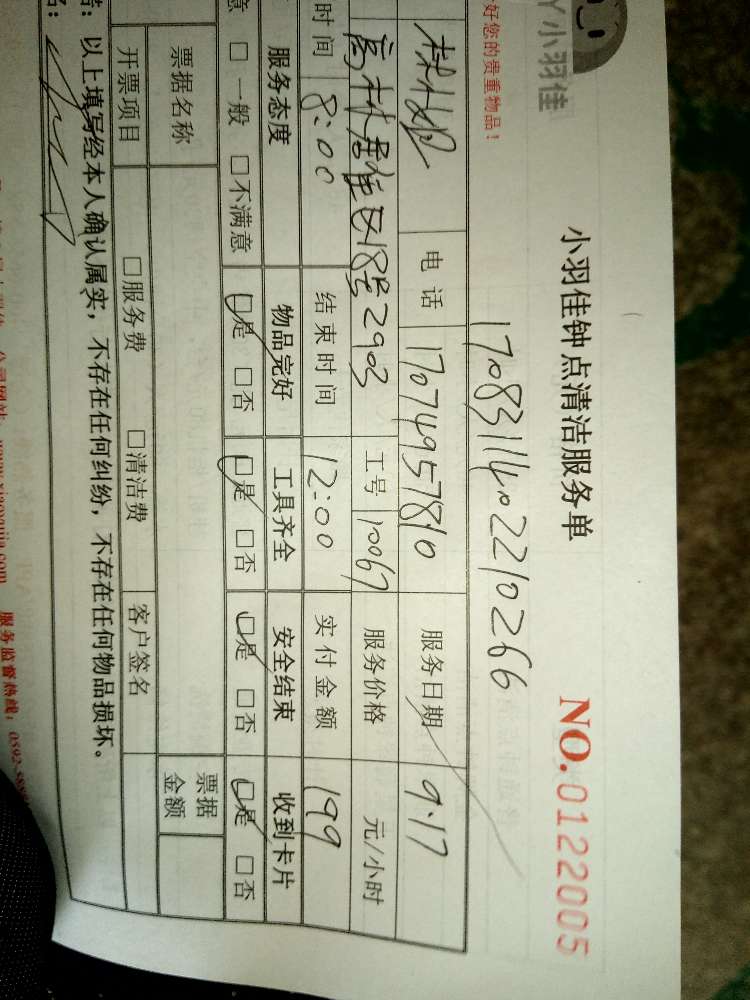 小羽佳
好您的贵重物品！
小羽佳钟点清洁服务单
NO.0122005
17083111402210266
电话 17074957810 服务日期 9.17
高林居住区18号2903 工号 10067 服务价格 元/小时
时间 8:00 结束时间 12:00 实付金额 199
服务态度 物品完好 工具齐全 安全结束 收到卡片
意 □一般 □不满意 □是 □否 □是 □否 □是 □否 □是 □否
票据名称 票据金额
开票项目 □服务费 □清洁费 客户签名
以上填写经本人确认属实，不存在任何纠纷，不存在任何物品损坏。
公司网站：www.xiaoyujia.com 服务监督热线：0592-